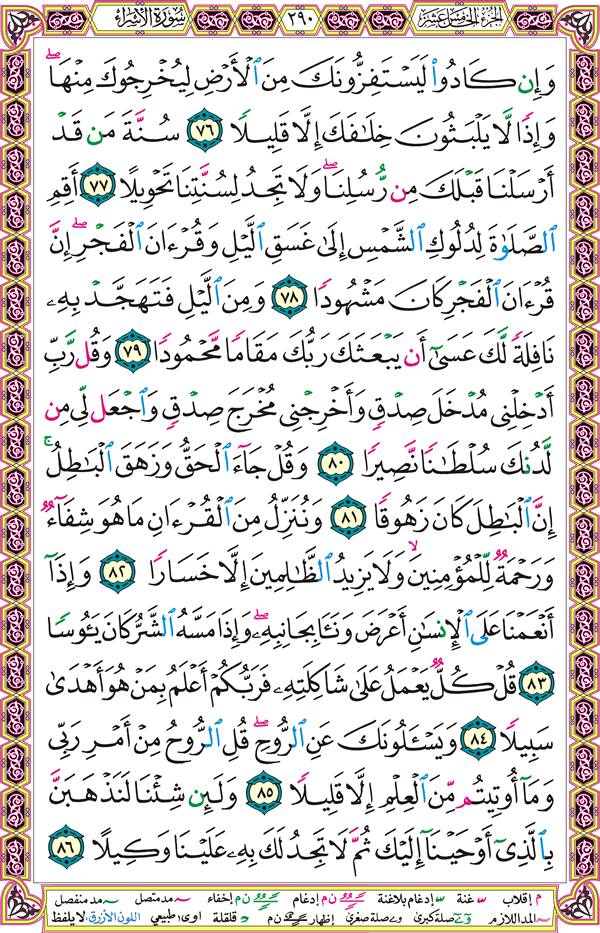 سورة الإسراء ٢٩٠ الجزء الخامس عشر
وَإِن كَادُوا۟ لَيَسْتَفِزُّونَكَ مِنَ ٱلْأَرْضِ لِيُخْرِجُوكَ مِنْهَا ۖ
وَإِذًا لَّا يَلْبَثُونَ خِلَـٰفَكَ إِلَّا قَلِيلًا ٧٦ سُنَّةَ مَن قَدْ
أَرْسَلْنَا قَبْلَكَ مِن رُّسُلِنَا ۖ وَلَا تَجِدُ لِسُنَّتِنَا تَحْوِيلًا ٧٧ أَقِمِ
ٱلصَّلَوٰةَ لِدُلُوكِ ٱلشَّمْسِ إِلَىٰ غَسَقِ ٱلَّيْلِ وَقُرْءَانَ ٱلْفَجْرِ ۖ إِنَّ
قُرْءَانَ ٱلْفَجْرِ كَانَ مَشْهُودًا ٧٨ وَمِنَ ٱلَّيْلِ فَتَهَجَّدْ بِهِۦ
نَافِلَةً لَّكَ عَسَىٰٓ أَن يَبْعَثَكَ رَبُّكَ مَقَامًا مَّحْمُودًا ٧٩ وَقُل رَّبِّ
أَدْخِلْنِى مُدْخَلَ صِدْقٍ وَأَخْرِجْنِى مُخْرَجَ صِدْقٍ وَٱجْعَل لِّى مِن
لَّدُنكَ سُلْطَـٰنًا نَّصِيرًا ٨٠ وَقُلْ جَآءَ ٱلْحَقُّ وَزَهَقَ ٱلْبَـٰطِلُ ۚ
إِنَّ ٱلْبَـٰطِلَ كَانَ زَهُوقًا ٨١ وَنُنَزِّلُ مِنَ ٱلْقُرْءَانِ مَا هُوَ شِفَآءٌ
وَرَحْمَةٌ لِّلْمُؤْمِنِينَ ۙ وَلَا يَزِيدُ ٱلظَّـٰلِمِينَ إِلَّا خَسَارًا ٨٢ وَإِذَآ
أَنْعَمْنَا عَلَى ٱلْإِنسَـٰنِ أَعْرَضَ وَنَـَٔا بِجَانِبِهِۦ ۖ وَإِذَا مَسَّهُ ٱلشَّرُّ كَانَ يَـُٔوسًا
٨٣ قُلْ كُلٌّ يَعْمَلُ عَلَىٰ شَاكِلَتِهِۦ فَرَبُّكُمْ أَعْلَمُ بِمَنْ هُوَ أَهْدَىٰ
سَبِيلًا ٨٤ وَيَسْـَٔلُونَكَ عَنِ ٱلرُّوحِ ۖ قُلِ ٱلرُّوحُ مِنْ أَمْرِ رَبِّى
وَمَآ أُوتِيتُم مِّنَ ٱلْعِلْمِ إِلَّا قَلِيلًا ٨٥ وَلَئِن شِئْنَا لَنَذْهَبَنَّ
بِٱلَّذِىٓ أَوْحَيْنَآ إِلَيْكَ ثُمَّ لَا تَجِدُ لَكَ بِهِۦ عَلَيْنَا وَكِيلًا ٨٦
م إقلاب غنة إدغام بلاغنة ن م إدغام ن م إخفاء مد متصل مد منفصل
المد اللازم صلة كبرى صلة صغرى إظهار ن م قلقلة اوى طبيعي اللون الأزرق لا يلفظ